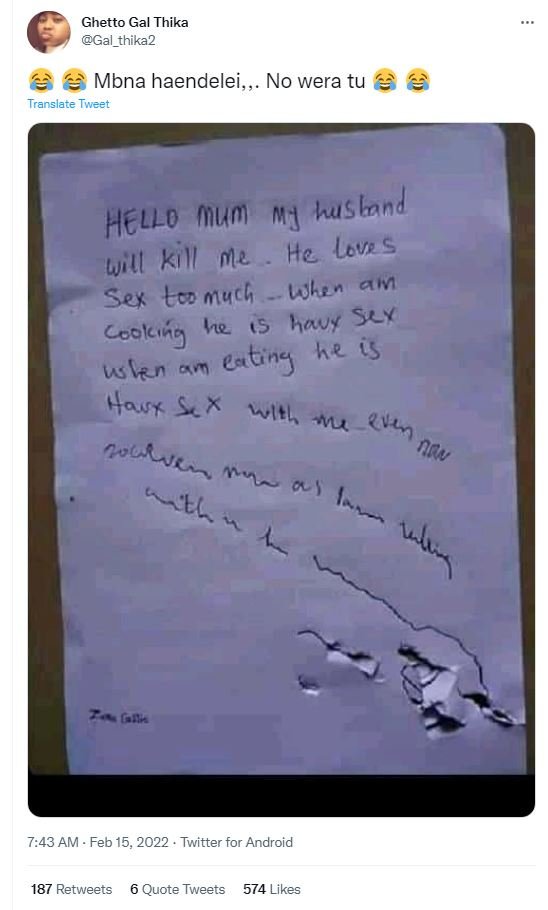 Ghetto Gal Thika
@Gal_thika2
😂 😂 Mbna haendelei,,. No wera tu 😂 😂
Translate Tweet
HELLO mum my husband
will kill me . He loves
Sex too much - when am
cooking he is havx sex
when am eating he is
Havx Sex with me even now
as I am
7:43 AM · Feb 15, 2022 · Twitter for Android
187 Retweets 6 Quote Tweets 574 Likes